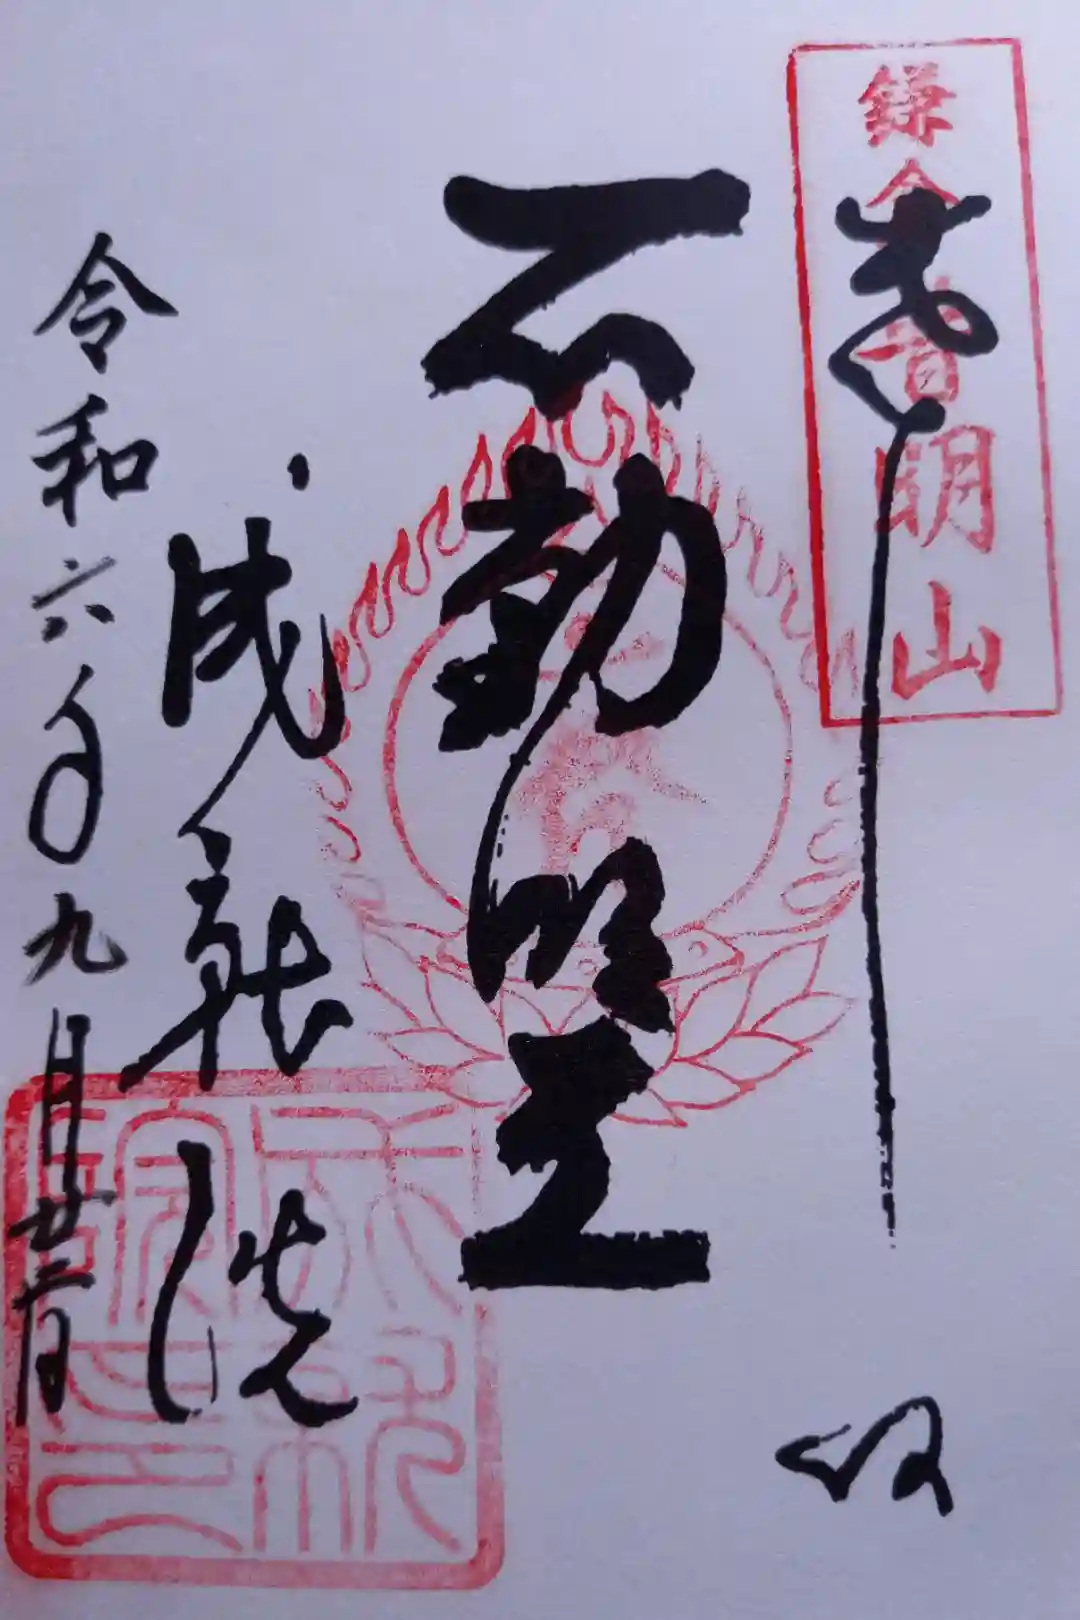 鎌倉 普明山
奉拝
不動明王
成就院
令和六年九月廿二日